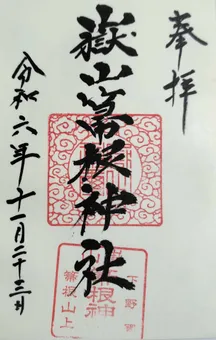 奉拝
嶽山箒根神社
令和六年十一月二十三日
下野国
箒根神
箒根山上